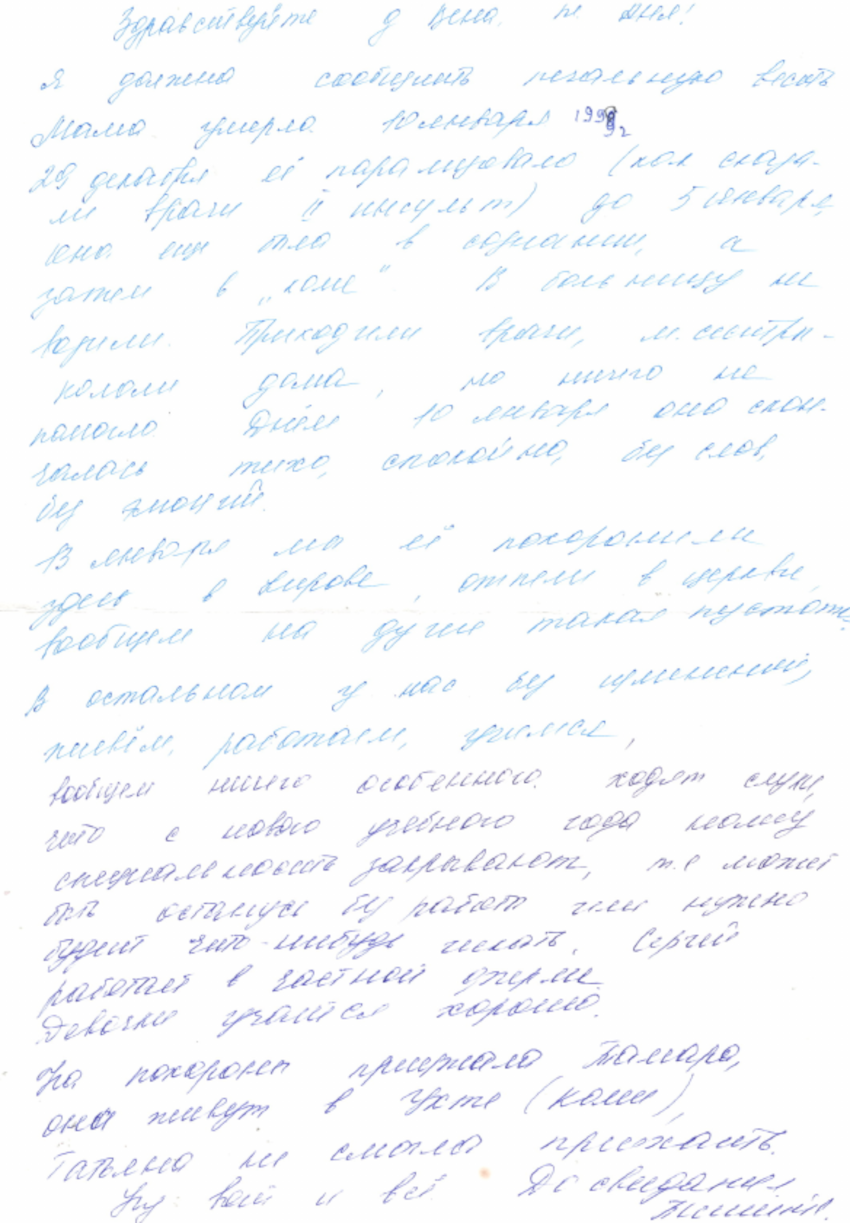 Здравствуйте д Вена, т. Аня!
Я должна сообщить печальную весть
Мама умерла 10 января 199
29 декабря её парализовало (как сказа-
ли врачи II инсульт) до 5 января,
она еще была в сознании, а
затем в „коме". В больницу не
возили. Приходили врачи, м. сестры-
кололи дома, но ничего не
помогло. Днём 10 января она скон-
чалась тихо, спокойно, без слов,
без эмоций.
13 января мы её похоронили
здесь в Кирове, отпели в церкви,
вообщем на душе такая пустота.
В остальном у нас без изменений,
живём, работаем, учимся,
вообщем ничего особенного. ходят слухи,
что с нового учебного года нашу
специальность закрывают, т.е может
быть останусь без работы или нужно
будет что-нибудь искать. Сергей
работает в частной фирме
Девочки учатся хорошо.
На похороны приезжала Тамара,
они живут в Ухте (Коми),
Татьяна не смогла приехать.
Ну вот и всё До свидания